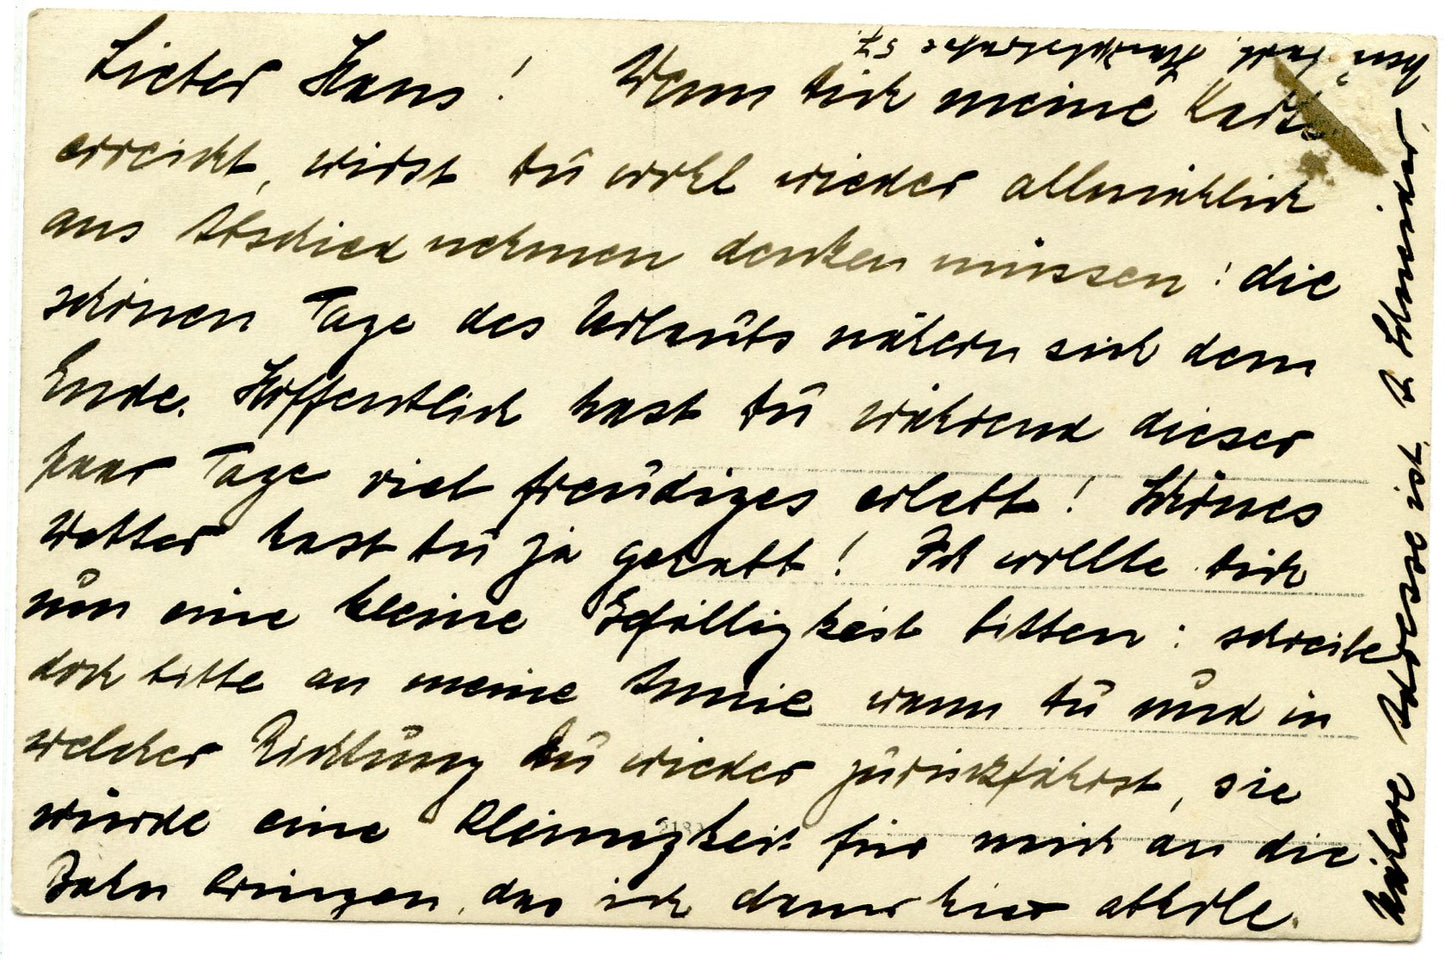 Lieber Hans! Wenn Dich meine Karte
erreicht, wirst Dū wohl wieder allmählich
ans Abschied nehmen denken müssen: die
schönen Tage des Urlaūbs nähern sich dem
Ende. Hoffentlich hast Dū während dieser
paar Tage viel freūdiges erlebt! Schönes
Wetter hast Dū ja gehabt! Ich wollte Dich
nūn eine kleine Gefälligkeit bitten: schreibe
doch bitte an meine Annie wann Dū ūnd in
welcher Richtūng Dū wieder zūrückfährst, sie
würde eine Kleinigkeit für mich an die
Bahn bringen, das ich dann hier abhole.
Nähere Adresse ist, A. Schneider
57.